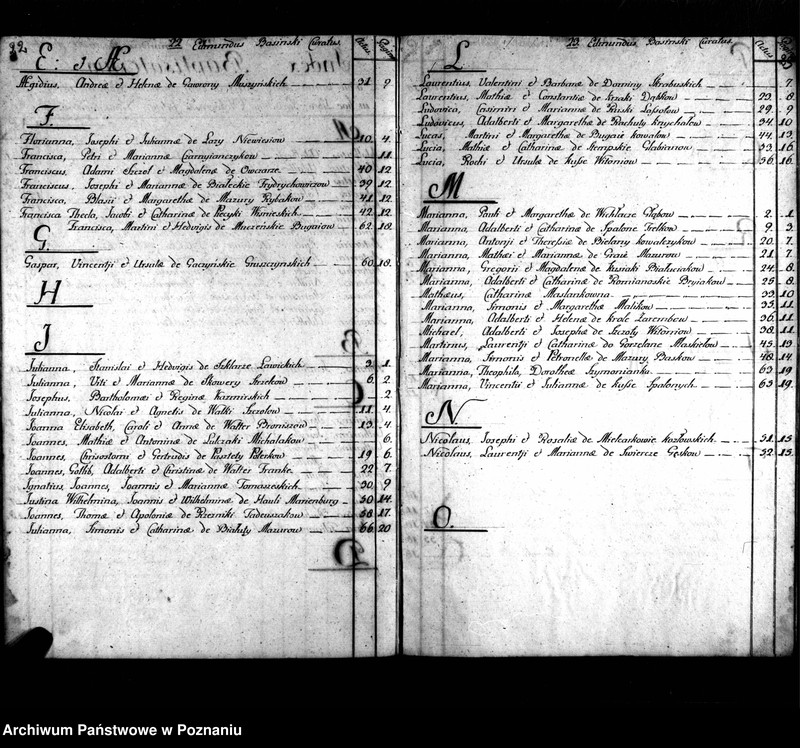 22
23 Edmundus Basinski Curatus
Actus Pagina
E: & Æ
Ægidius, Andreæ et Helenæ de Gawrony Muszyńskich 31. 9
F.
Florianna, Josephi et Juliannæ de Lazy Niewiesiow 10. 4.
Francisca, Petri et Mariannæ Czarnyianczykow 11
Franciscus, Adami et Magdalenæ de Owczarze 40 12
Franciscus, Josephi et Mariannæ de Białeckie Frydrychowiczow 39 12
Francisca, Blasii et Margarethæ de Mazury Rybakow 41. 12
Francisca Thecla, Jacobi et Catharinæ de Wisnieskich 42. 12
Francisca, Martini et Hedvigis de Muczeńskie Bugaiow 62. 18.
G.
Gaspar, Vincentii et Ursulæ de Gaczyńskie Gruszczynskich 60 18.
H
J
Julianna, Stanislai et Hedvigis de Szklarze Lawickich 3. 1.
Julianna, Viti et Mariannæ de Skowery Srzekow 6. 2.
Josephus, Bartholomæi et Reginæ Kazmirskich 2.
Julianna, Nicolai et Agnetis de Walki Szczotow 11. 4.
Joanna Elisabeth, Caroli et Annæ de Walter Broniszow 13. 4.
Joannes, Mathiæ et Antoninæ de Lukzaki Michalakow 6.
Joannes, Chrisostomi et Gertrudis de Pustety Polekow 19 6.
Joannes, Gotlib, Adalberti et Christinæ de Walter Franke 22 7.
Ignatius Joannes, Joannis et Mariannæ Tomaszeskich 30 9
Justina Wilhelmina, Joannis et Wilhelminæ de Hauli Marienburg 50 14.
Joannes, Thomæ et Apoloniæ de Rzemiki Tadeuszakow 58. 17.
Julianna, Simonis et Catharinæ de Białuty Mazurow 66. 20
23 Edmundus Basinski Curatus
Actus Pagina
L
Laurentius, Valentini et Barbaræ de Dominy Strabuskich 7.
Laurentius, Mathiæ et Constantiæ de Kruki Dąbkow 23. 8.
Ludovica, Casimiri et Mariannæ de Ruski Lassotow 29. 9.
Ludovicus, Adalberti et Margarethæ de Rochuty Krychalow 34. 10
Lucas, Martini et Margarethæ de Bugaie Kowalow 44. 13.
Lucia, Mathiæ et Catharinæ de Krempskie Glabianow 53. 16.
Lucia, Rochi et Ursulæ de Kusse Witoniow 56. 16.
M
Marianna, Pauli et Margarethæ de Wichlacze Głąbow 2. 1.
Marianna, Adalberti et Catharinæ de Spalone Fretkow 9. 3.
Marianna, Antonji et Theresiæ de Bielarry Kowalczykow 20. 7.
Marianna, Mathei et Mariannæ de Graie Mazurow 21. 7.
Marianna, Gregorii et Magdalenæ de Kusiaki Białuciakow 24. 8.
Marianna, Adalberti et Catharinæ de Romianoskie Bryiakow 25 8.
Mathæus, Catharinæ Maslankowna 33. 10
Marianna, Simonis et Margarethæ Malikow 35. 11.
Marianna, Adalberti et Helenæ de Krale Zarembow 36. 11.
Michael, Adalberti et Josephæ de Szczoty Witoniow 38. 11.
Martinus, Laurentji et Catharinæ de Gorzelane Maskielow 45. 13
Marianna, Simonis et Petronellæ de Mazury Baskow 48. 14
Marianna Theophila, Dorotheæ Szymonianki 63 19
Marianna, Vincentii et Juliannæ de Kusse Spalonych 63. 19.
N.
Nicolaus, Josephi et Rosaliæ de Mielcaskowie Kozłowskich 51. 15
Nicolaus, Laurentji et Mariannæ de Swiercze Gęskow 52. 15.
O.
Archiwum Państwowe w Poznaniu